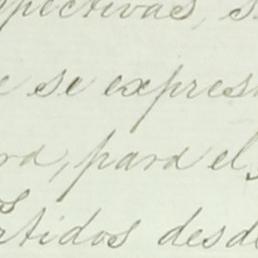 spectivas, s
e se expres
ra, para el
rtidos desde